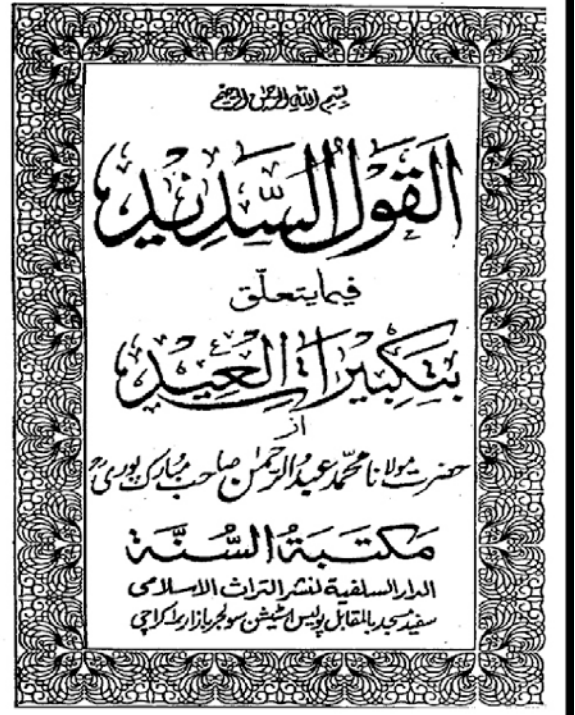 بسم الله الرحمن الرحيم
القول السديد
فيما يتعلق
بتكبيرات العيد
از
حضرت مولانا محمد عبدالرحمٰن صاحب مبارک پوری رح
مكتبة السنة
الدار السلفية لنشر التراث الاسلامی
سفید مسجد بالمقابل پولیس اسٹیشن سولجر بازار کراچی